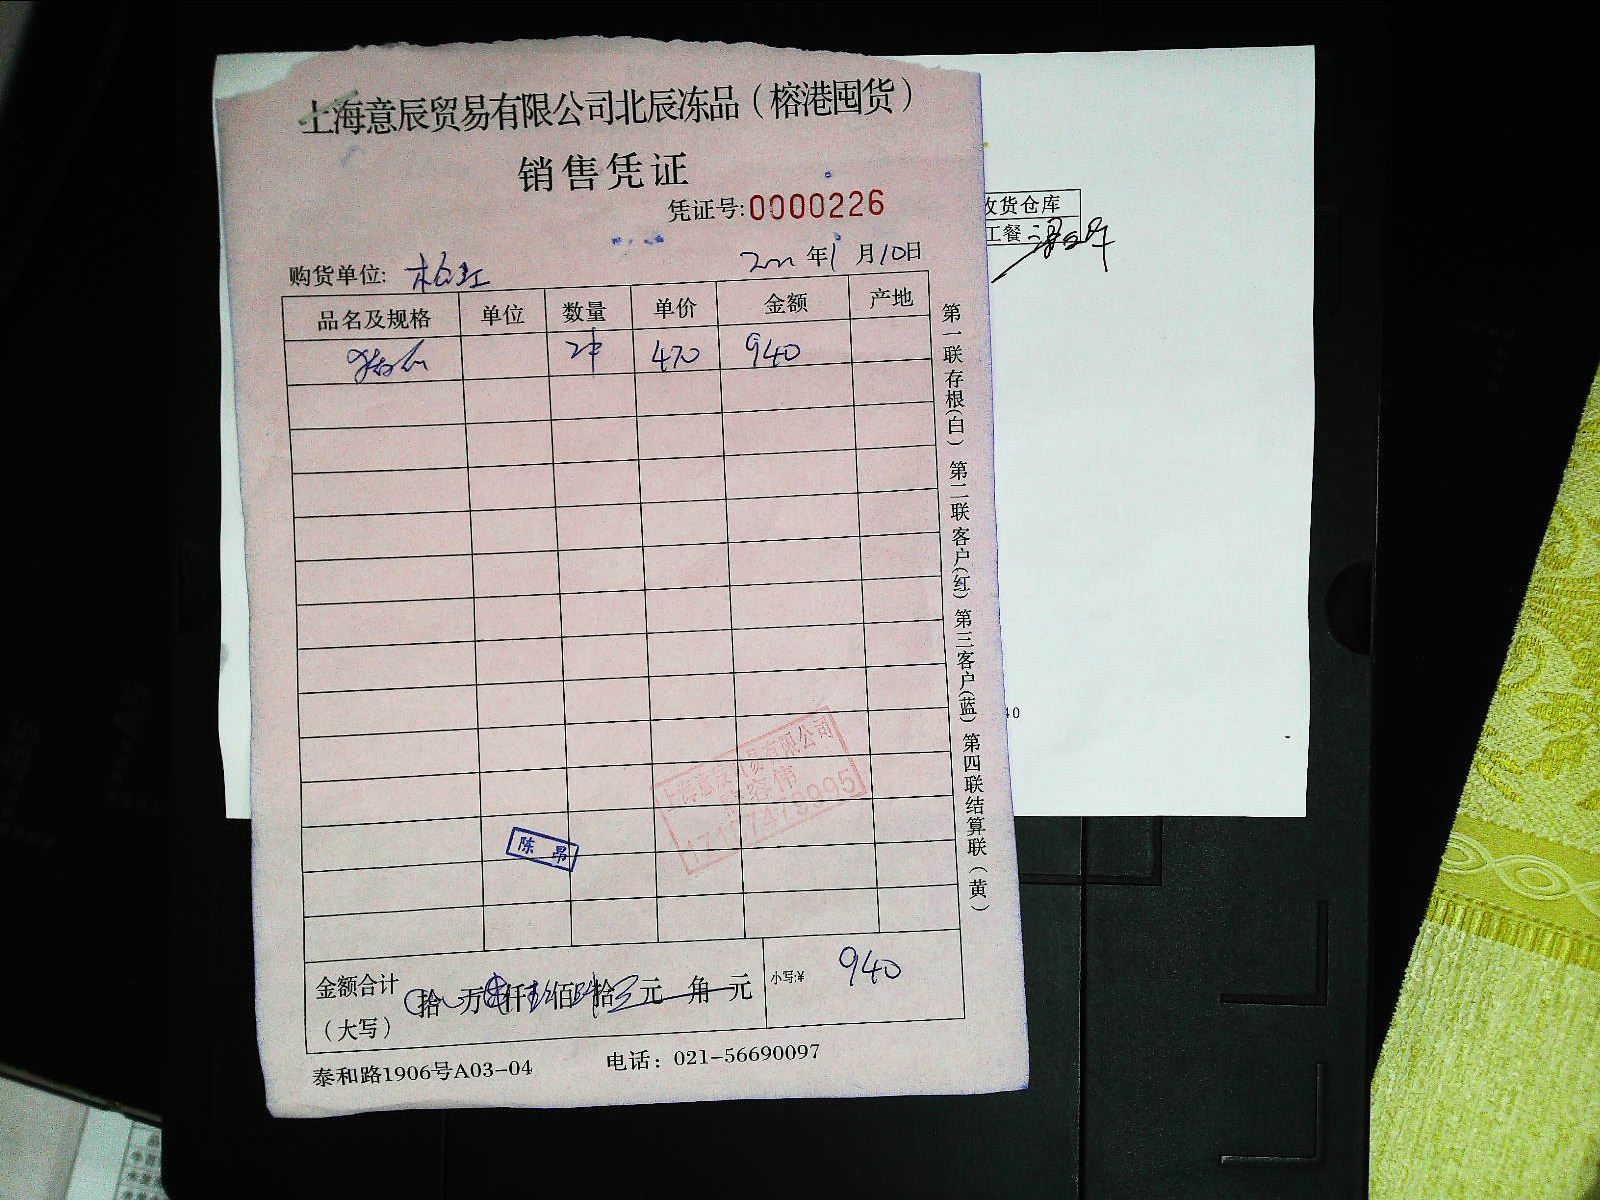 上海意辰贸易有限公司北辰冻品（榕港囤货）
销售凭证
凭证号:0000226
购货单位: 年1月10日
品名及规格 单位 数量 单价 金额 产地
2件 470 940
第一联存根(白) 第二联客户(红) 第三客户(蓝) 第四联结算联(黄)
上海意辰贸易有限公司
陈昂
金额合计 拾 万 仟 佰 拾 元 角 元 小写:¥ 940
（大写）
泰和路1906号A03-04 电话：021-56690097
收货仓库
工餐
40